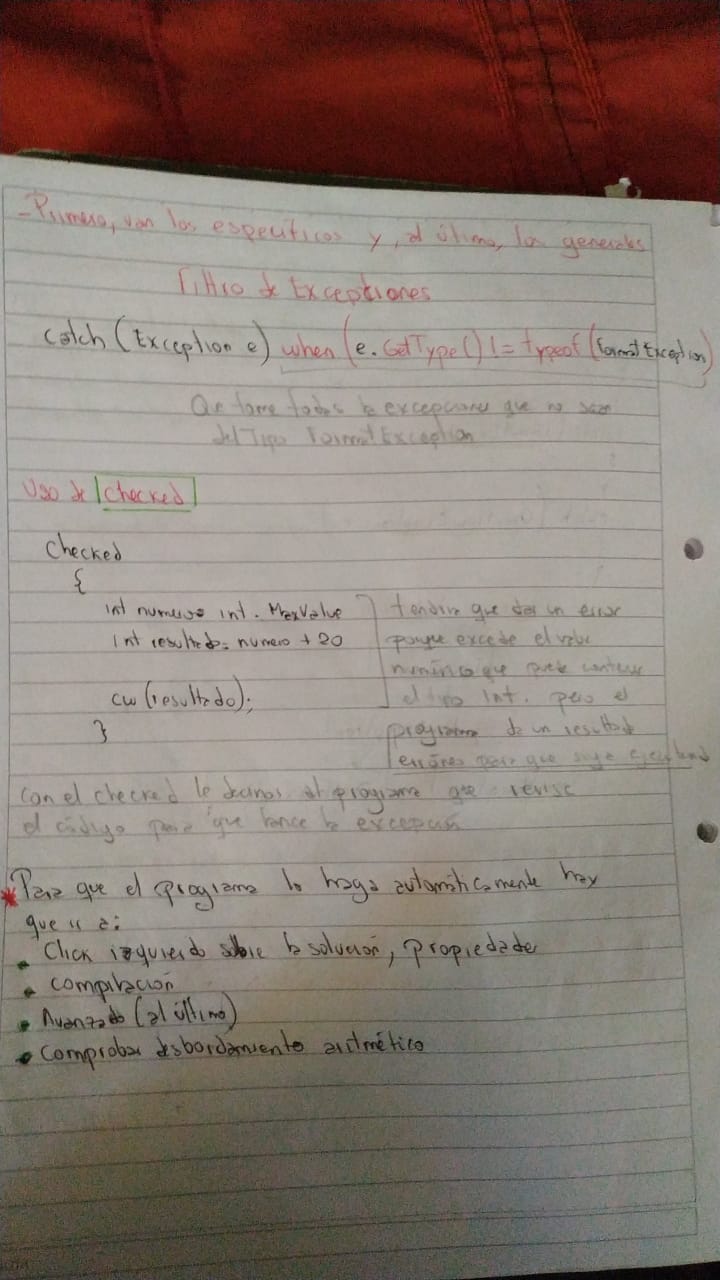 - Primero, van los específicos y, al último, los generales
Filtro de Exceptiones
catch (Exception e) when (e.GetType() != typeof (FormatException)
Que tome todas la excepciones que no sean
del Tipo FormatException
Uso de checked
checked
{
int numero int. MaxValue
int resultado= numero + 20
cw (resultado);
}
tendría que dar un error
porque excede el valor
numérico que puede contener
el tipo int. pero el
programa da un resultado
erróneo para que siga ejecutand
Con el checked le decimos al programa que revise
el código para que lance la excepción
* Para que el programa lo haga automáticamente hay
que ir a:
• Click izquierdo sobre la solución, propiedades
• Compilación
• Avanzado (al último)
• Comprobar desbordamiento aritmético